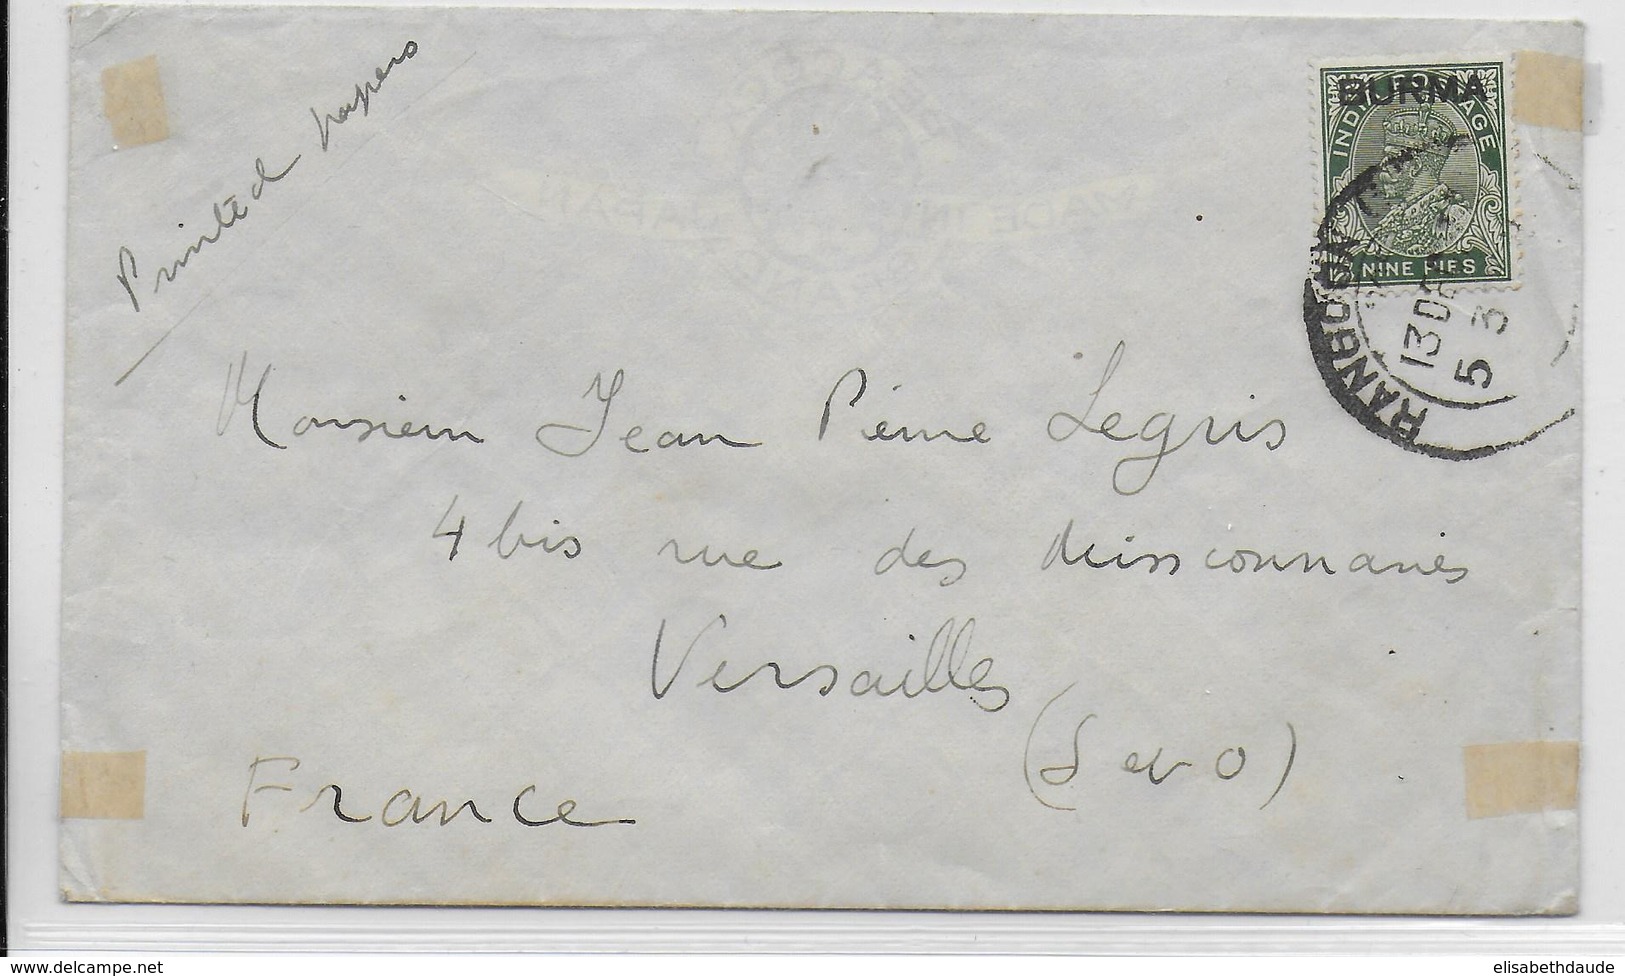 Printed papers
BURMA
INDIA POSTAGE
NINE PIES
RANGOON
13 DE
5 3
MADE IN JAPAN
Monsieur Jean Pierre Legris
4 bis rue des Missionnaires
Versailles
(S et O)
France
www.delcampe.net
elisabethdaude